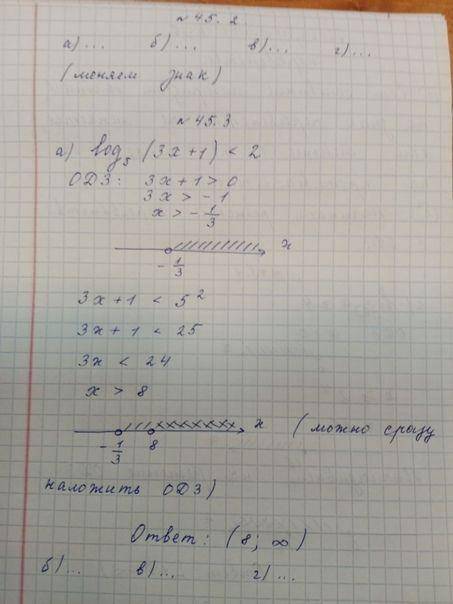 № 45.2
а) ... б) ... в) ... г) ...
(меняем знак)
№ 45.3
а) log₅ (3x+1) < 2
ОДЗ: 3x+1 > 0
3x > -1
x > -1/3
x
-1/3
3x+1 < 5²
3x+1 < 25
3x < 24
x > 8
x (можно сразу
-1/3 8
наложить ОДЗ)
Ответ: (8; ∞)
б) ... в) ... г) ...